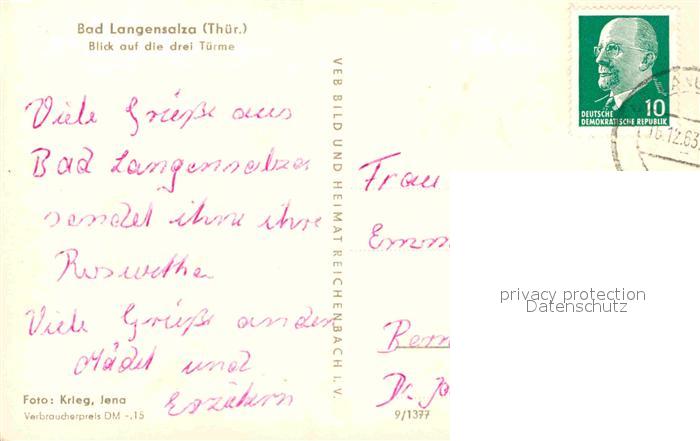 Bad Langensalza (Thür.)
Blick auf die drei Türme
Viele Grüße aus
Bad Langensalza
sendet ihne ihre
Roswitha
Viele Grüße an den
Mädel und
Erzäherin
Foto: Krieg, Jena
Verbraucherpreis DM -,15
VEB BILD UND HEIMAT REICHENBACH I. V.
9/1377
10
DEUTSCHE
DEMOKRATISCHE REPUBLIK
16.12.63
Frau
Emm
Bern
Dr. Jo
privacy protection
Datenschutz